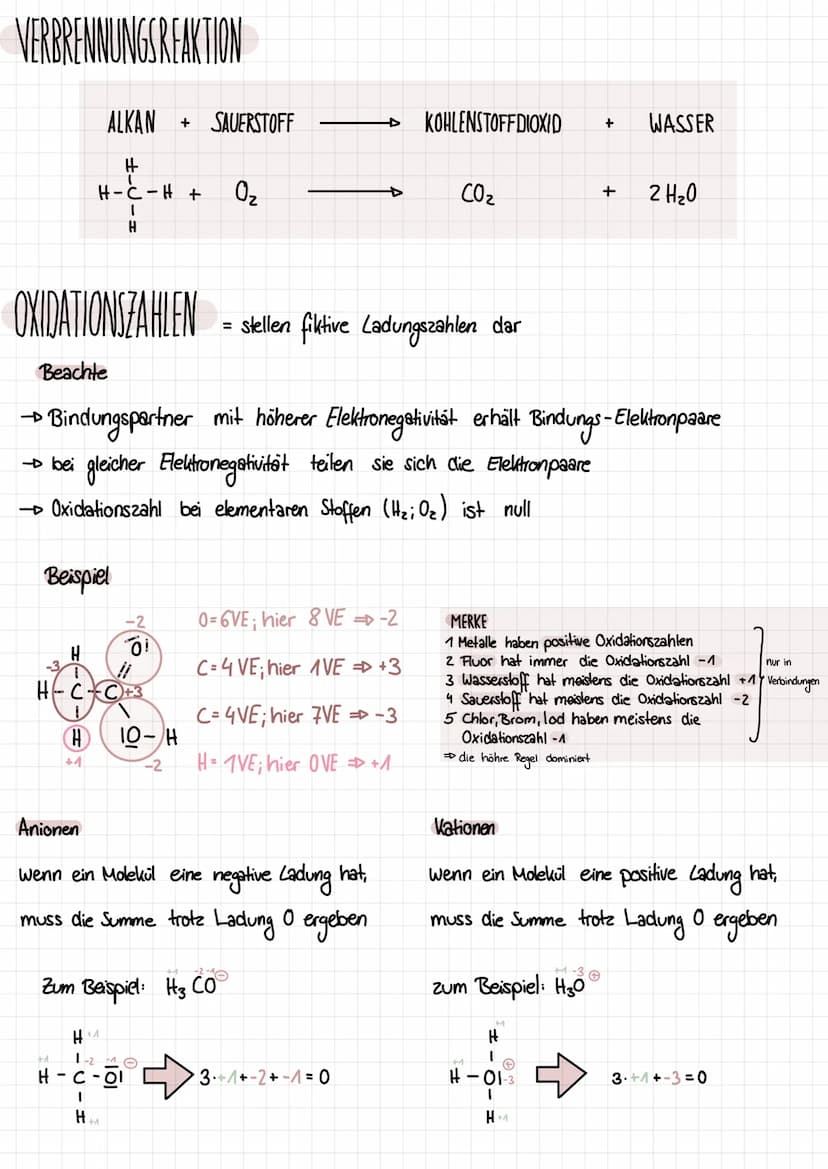 VERBRENNUNGSREAKTION
ALKAN + SAUERSTOFF → KOHLENSTOFFDIOXID + WASSER
H
H-C-H + O₂ → CO₂ + 2 H₂O
H
OXIDATIONSZAHLEN = stellen fiktive Ladungszahlen dar
Beachte
→ Bindungspartner mit höherer Elektronegativität erhält Bindungs-Elektronpaare
→ bei gleicher Elektronegativität teilen sie sich die Elektronpaare
→ Oxidationszahl bei elementaren Stoffen (H₂; O₂) ist null
Beispiel
-2
H O
-3
H-C-C +3
H IO-H
+1 -2
O=6VE; hier 8VE ⇒ -2
C=4VE; hier 1VE ⇒ +3
C=4VE; hier 7VE ⇒ -3
H=1VE; hier 0VE ⇒ +1
MERKE
1 Metalle haben positive Oxidationszahlen
2 Fluor hat immer die Oxidationszahl -1
3 Wasserstoff hat meistens die Oxidationszahl +1
4 Sauerstoff hat meistens die Oxidationszahl -2
5 Chlor, Brom, Iod haben meistens die
Oxidationszahl -1
⇒ die höhre Regel dominiert
nur in
Verbindungen
Anionen
Wenn ein Molekül eine negative Ladung hat,
muss die Summe trotz Ladung 0 ergeben
+1 -2 -1
Zum Beispiel: H₃CO⊖
H +1
+1 -2 -1 ⊖
H-C-OI
H +1
3·+1+-2+-1=0
Kationen
Wenn ein Molekül eine positive Ladung hat,
muss die Summe trotz Ladung 0 ergeben
+1 -3
zum Beispiel: H₃O⊕
+1
H
+1 ⊕
H-OI-3
H +1
3·+1+-3=0